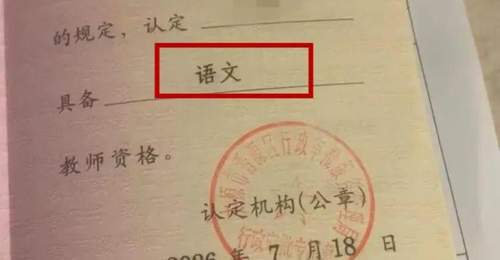 的规定，认定
语文
具备
教师资格。
认定机构(公章)
年 7 月 18 日